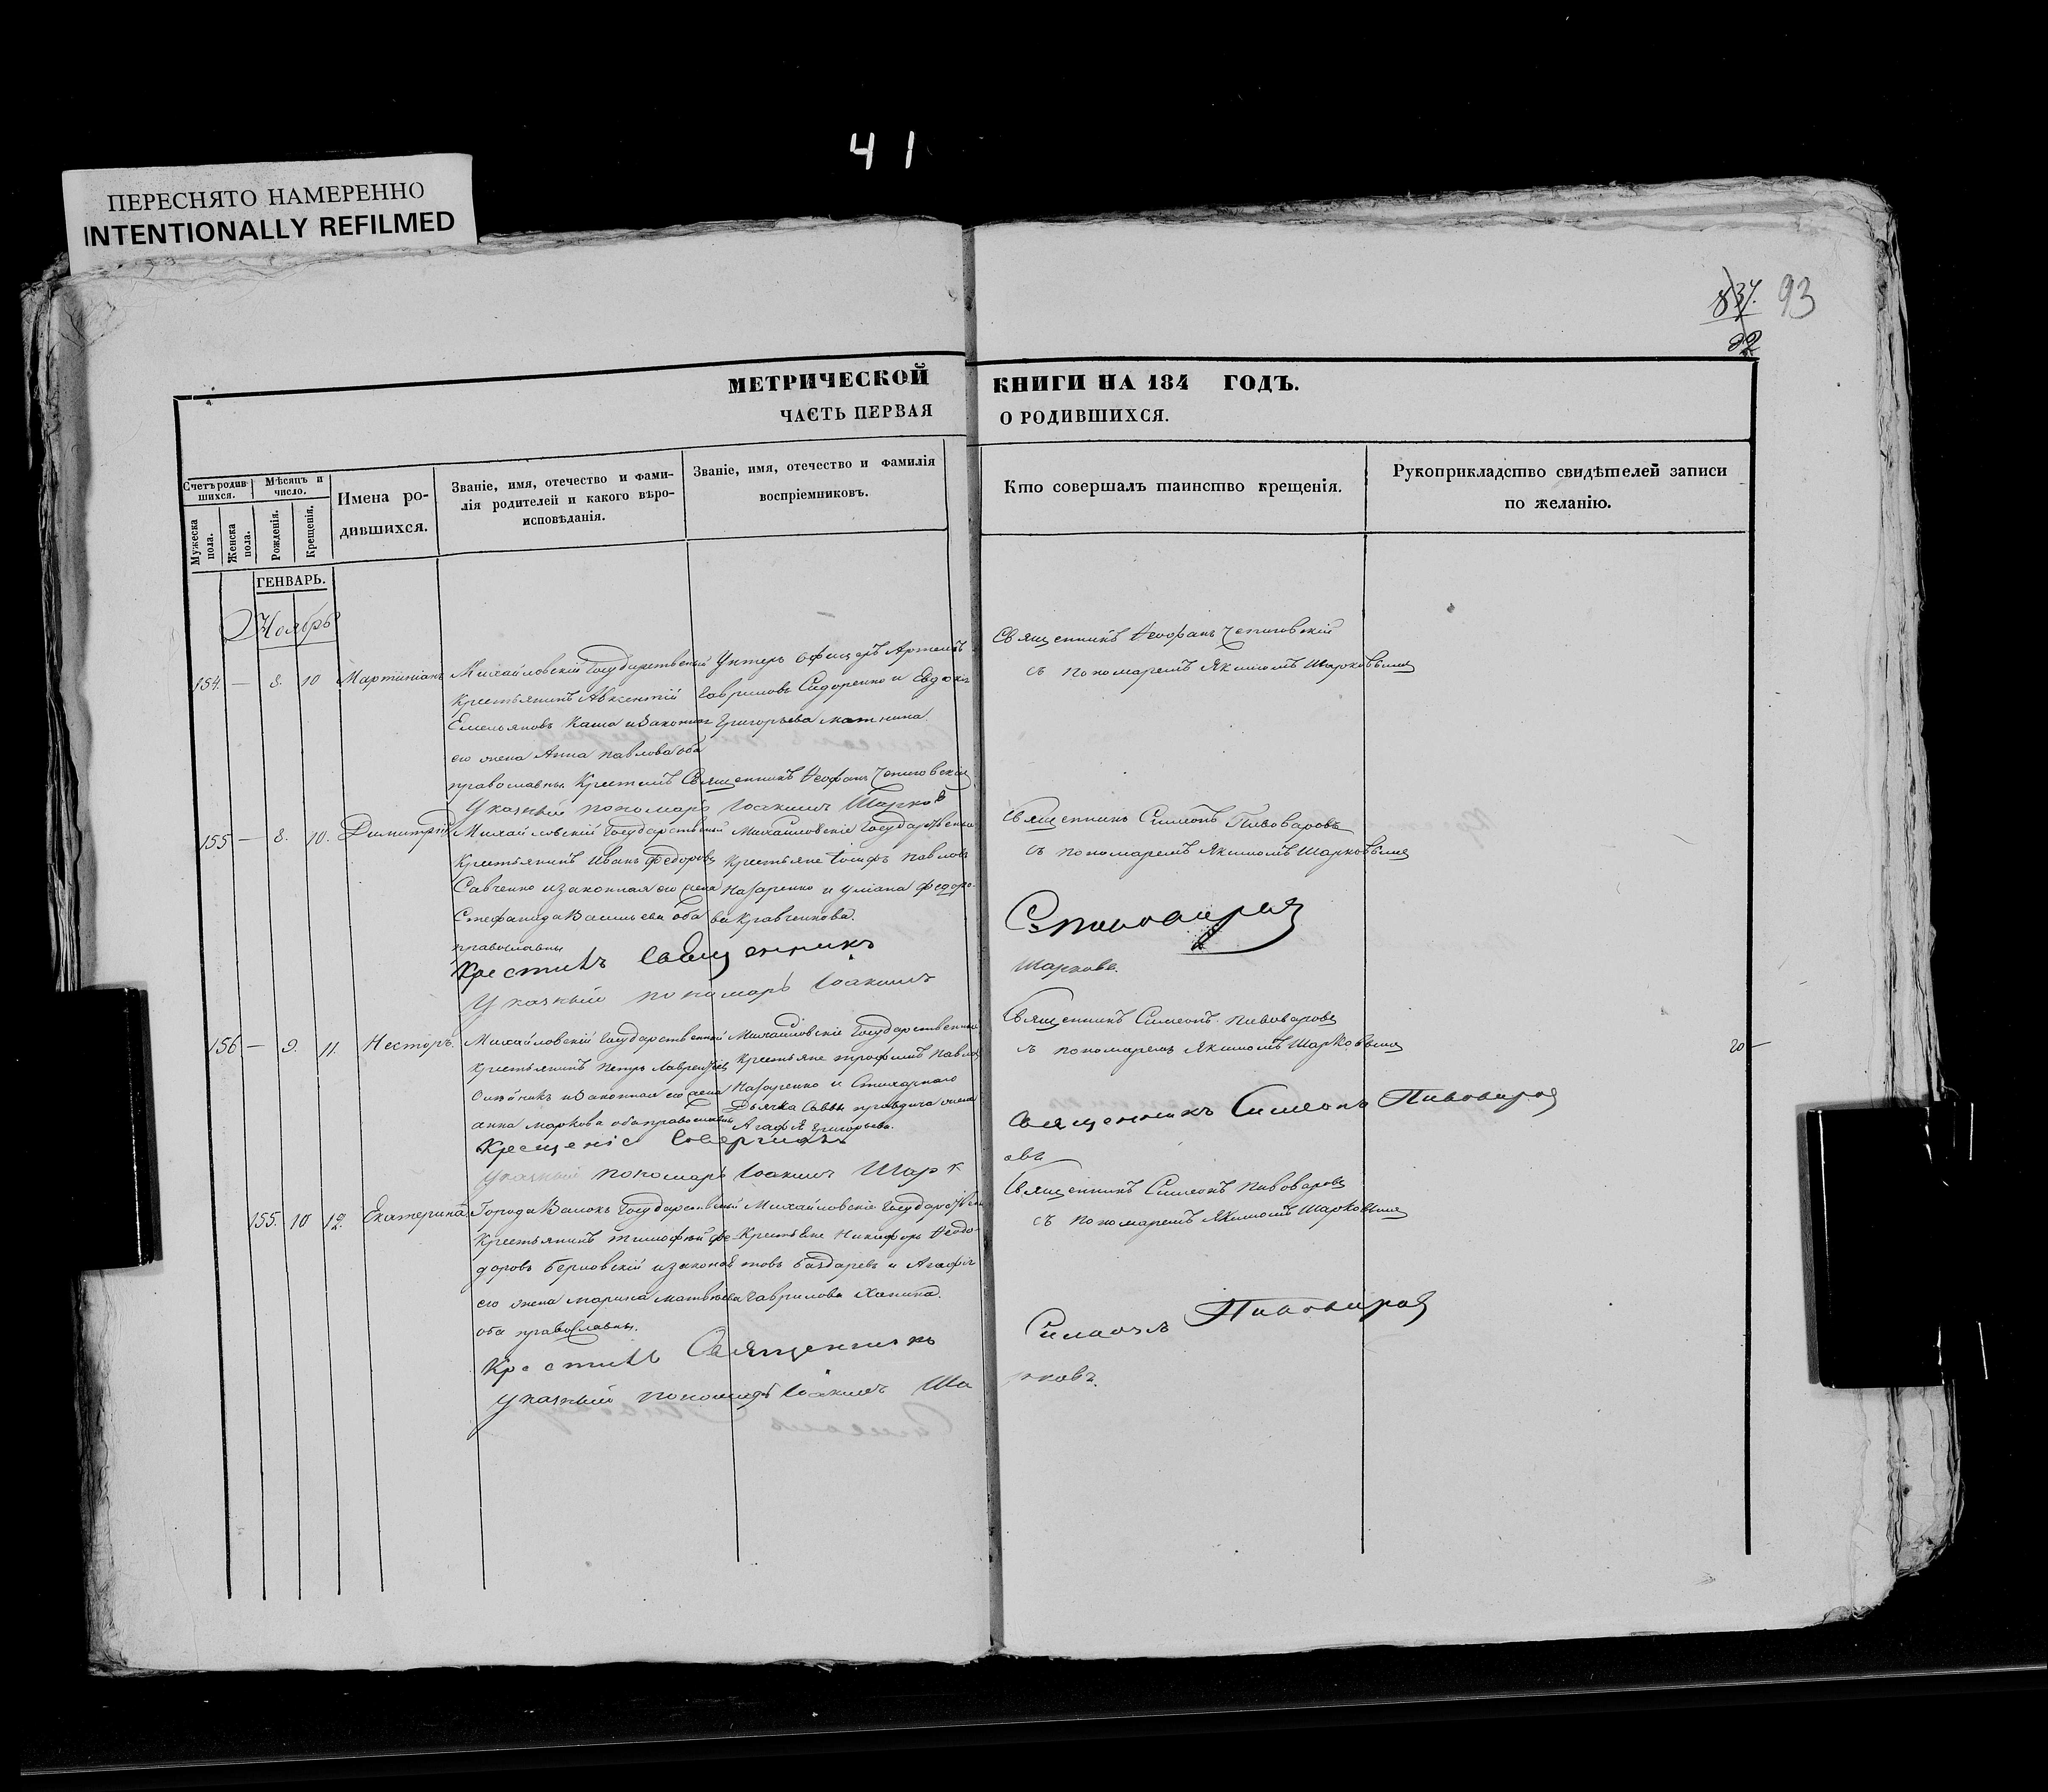 41
ПЕРЕСНЯТО НАМЕРЕННО
INTENTIONALLY REFILMED
837. 93
92
МЕТРИЧЕСКОЙ КНИГИ НА 184 ГОДЪ.
ЧАСТЬ ПЕРВАЯ О РОДИВШИХСЯ.
Счетъ родившихся.
Мужеска пола.
Женска пола.
Мѣсяцъ и число.
Рожденія.
Крещенія.
Имена родившихся.
Званіе, имя, отечество и фамилія родителей и какого вѣроисповѣданія.
Званіе, имя, отечество и фамилія воспріемниковъ.
Кто совершалъ таинство крещенія.
Рукоприкладство свидѣтелей записи по желанію.
ГЕНВАРЬ.
Ноябрь
154. — 8. 10 Мартиніанъ
Михайловскій Государственый
Крестьянинъ Авксентій
Емельяновъ Каша и Законная
его жена Анна Павлова оба
православны
Унтеръ офицеръ Артемъ
Гавриловъ Сидоренко и Евдокія
Григорьева
Священникъ Ѳеофанъ
съ пономаремъ Якимомъ Шарковымъ
Крестилъ Священникъ Ѳеофанъ
Указный пономарь Іоакимъ Шарковъ
155 — 8. 10. Димитрій
Михайловскій Государственый
Крестьянинъ Иванъ Федоровъ
Савченко и законная его жена
Стефанида Васильева оба
православны
Михайловскіе Государственые
Крестьяне Іосифъ Павловъ
Назаренко и Уліана Федоро-
ва Кравченкова.
Священникъ Симеонъ Пивоваровъ
съ пономаремъ Якимомъ Шарковымъ
Крестилъ Священникъ С Пивоваровъ
Указный пономарь Іоакимъ Шарковъ.
156 — 9. 11. Несторъ.
Михайловскій Государственный
Крестьянинъ Петръ Лаврентіевъ
Олѣйникъ и Законная его жена
Анна Маркова оба православны
Михайловскіе Государственные
Крестьяне Трофимъ Павловъ
Назаренко и Стихарнаго
Дьячка Саввы жена
Агафія Григорьева.
Священникъ Симеонъ Пивоваровъ
съ пономаремъ Якимомъ Шарковымъ
20 —
Крещеніе Совершилъ Священникъ Симеонъ Пивоваровъ
Указный пономарь Іоакимъ Шарковъ
155. 10 12. Екатерина
Города Валокъ Государственый
Крестьянинъ Тимофей Фе-
доровъ и законая
его жена Марина Матвѣева
оба православны.
Михайловскіе Государствен
Крестьяне Никифоръ Ѳеодо-
товъ и Агафія
Гаврилова
Священникъ Симеонъ Пивоваровъ
съ пономаремъ Якимомъ Шарковымъ
Крестилъ Священникъ Симеонъ Пивоваровъ
Указный пономарь Іоакимъ Шарковъ.